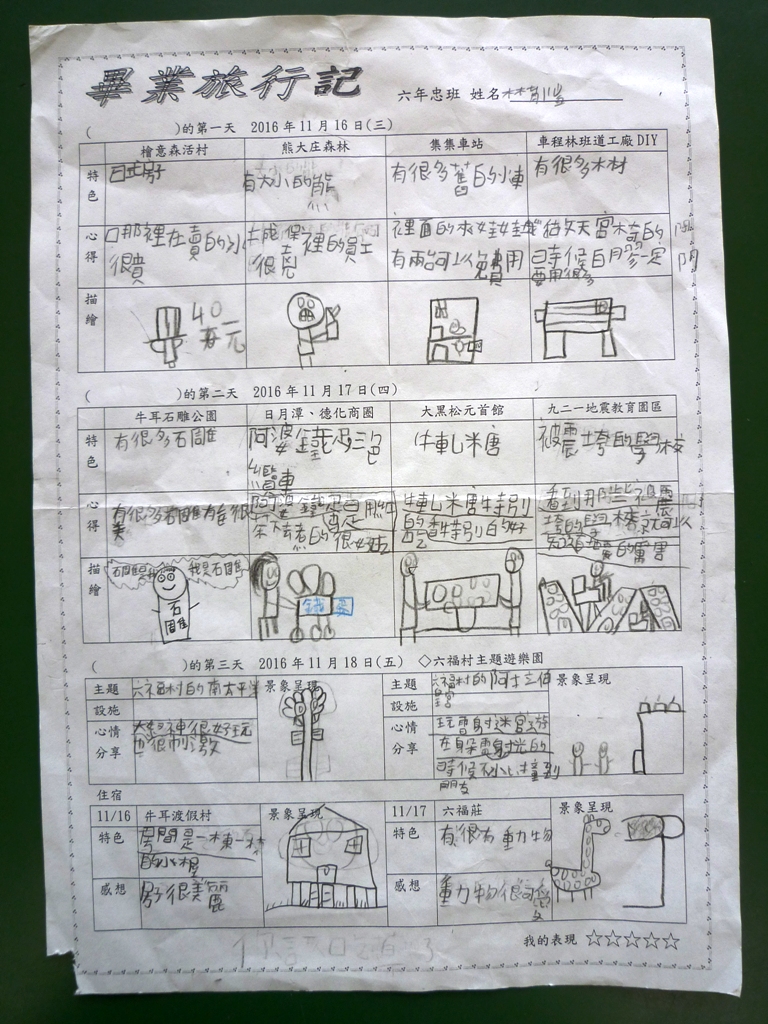 畢業旅行記
六年忠班 姓名
( )的第一天 2016年11月16日(三)
檜意森活村 熊大庄森林 集集車站 車程林班道工廠DIY
特色 日式房子 有大小的熊 有很多舊的火車 有很多木材
心得 那裡在賣的
很貴
裡的員工
很兇
裡面的
有兩台可以免費用
描繪
40元
( )的第二天 2016年11月17日(四)
牛耳石雕公園 日月潭、德化商圈 大黑松元首館 九二一地震教育園區
特色 有很多石雕 阿婆鐵蛋三色
纜車
牛軋糖
被震垮的學校
心得 有很多石雕有些很
美
阿婆鐵蛋是用
煮的很好吃
牛軋糖特別
的香特別的好
吃
看到那些被震
垮的學校就可以
知道地震的厲害
描繪
我是石雕
石雕
鐵蛋
( )的第三天 2016年11月18日(五) ◇六福村主題遊樂園
主題設施 六福村的南太平洋 景象呈現
心情分享 大怒神很好玩
也很刺激
主題設施 六福村的阿拉伯 景象呈現
皇宮
心情分享 玩雷射迷宮遊
在躲雷射光的
時候不小心撞到
朋友
住宿
11/16 牛耳渡假村 景象呈現
特色 房間是一棟一棟
的小木屋
感想 房子很美麗
11/17 六福莊 景象呈現
特色 有很多動物
感想 動物很可愛
我的表現 ☆☆☆☆☆